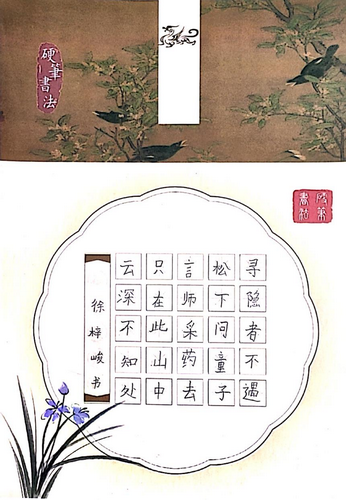 硬筆書法
寻隐者不遇
松下问童子
言师采药去
只在此山中
云深不知处
徐梓峻书